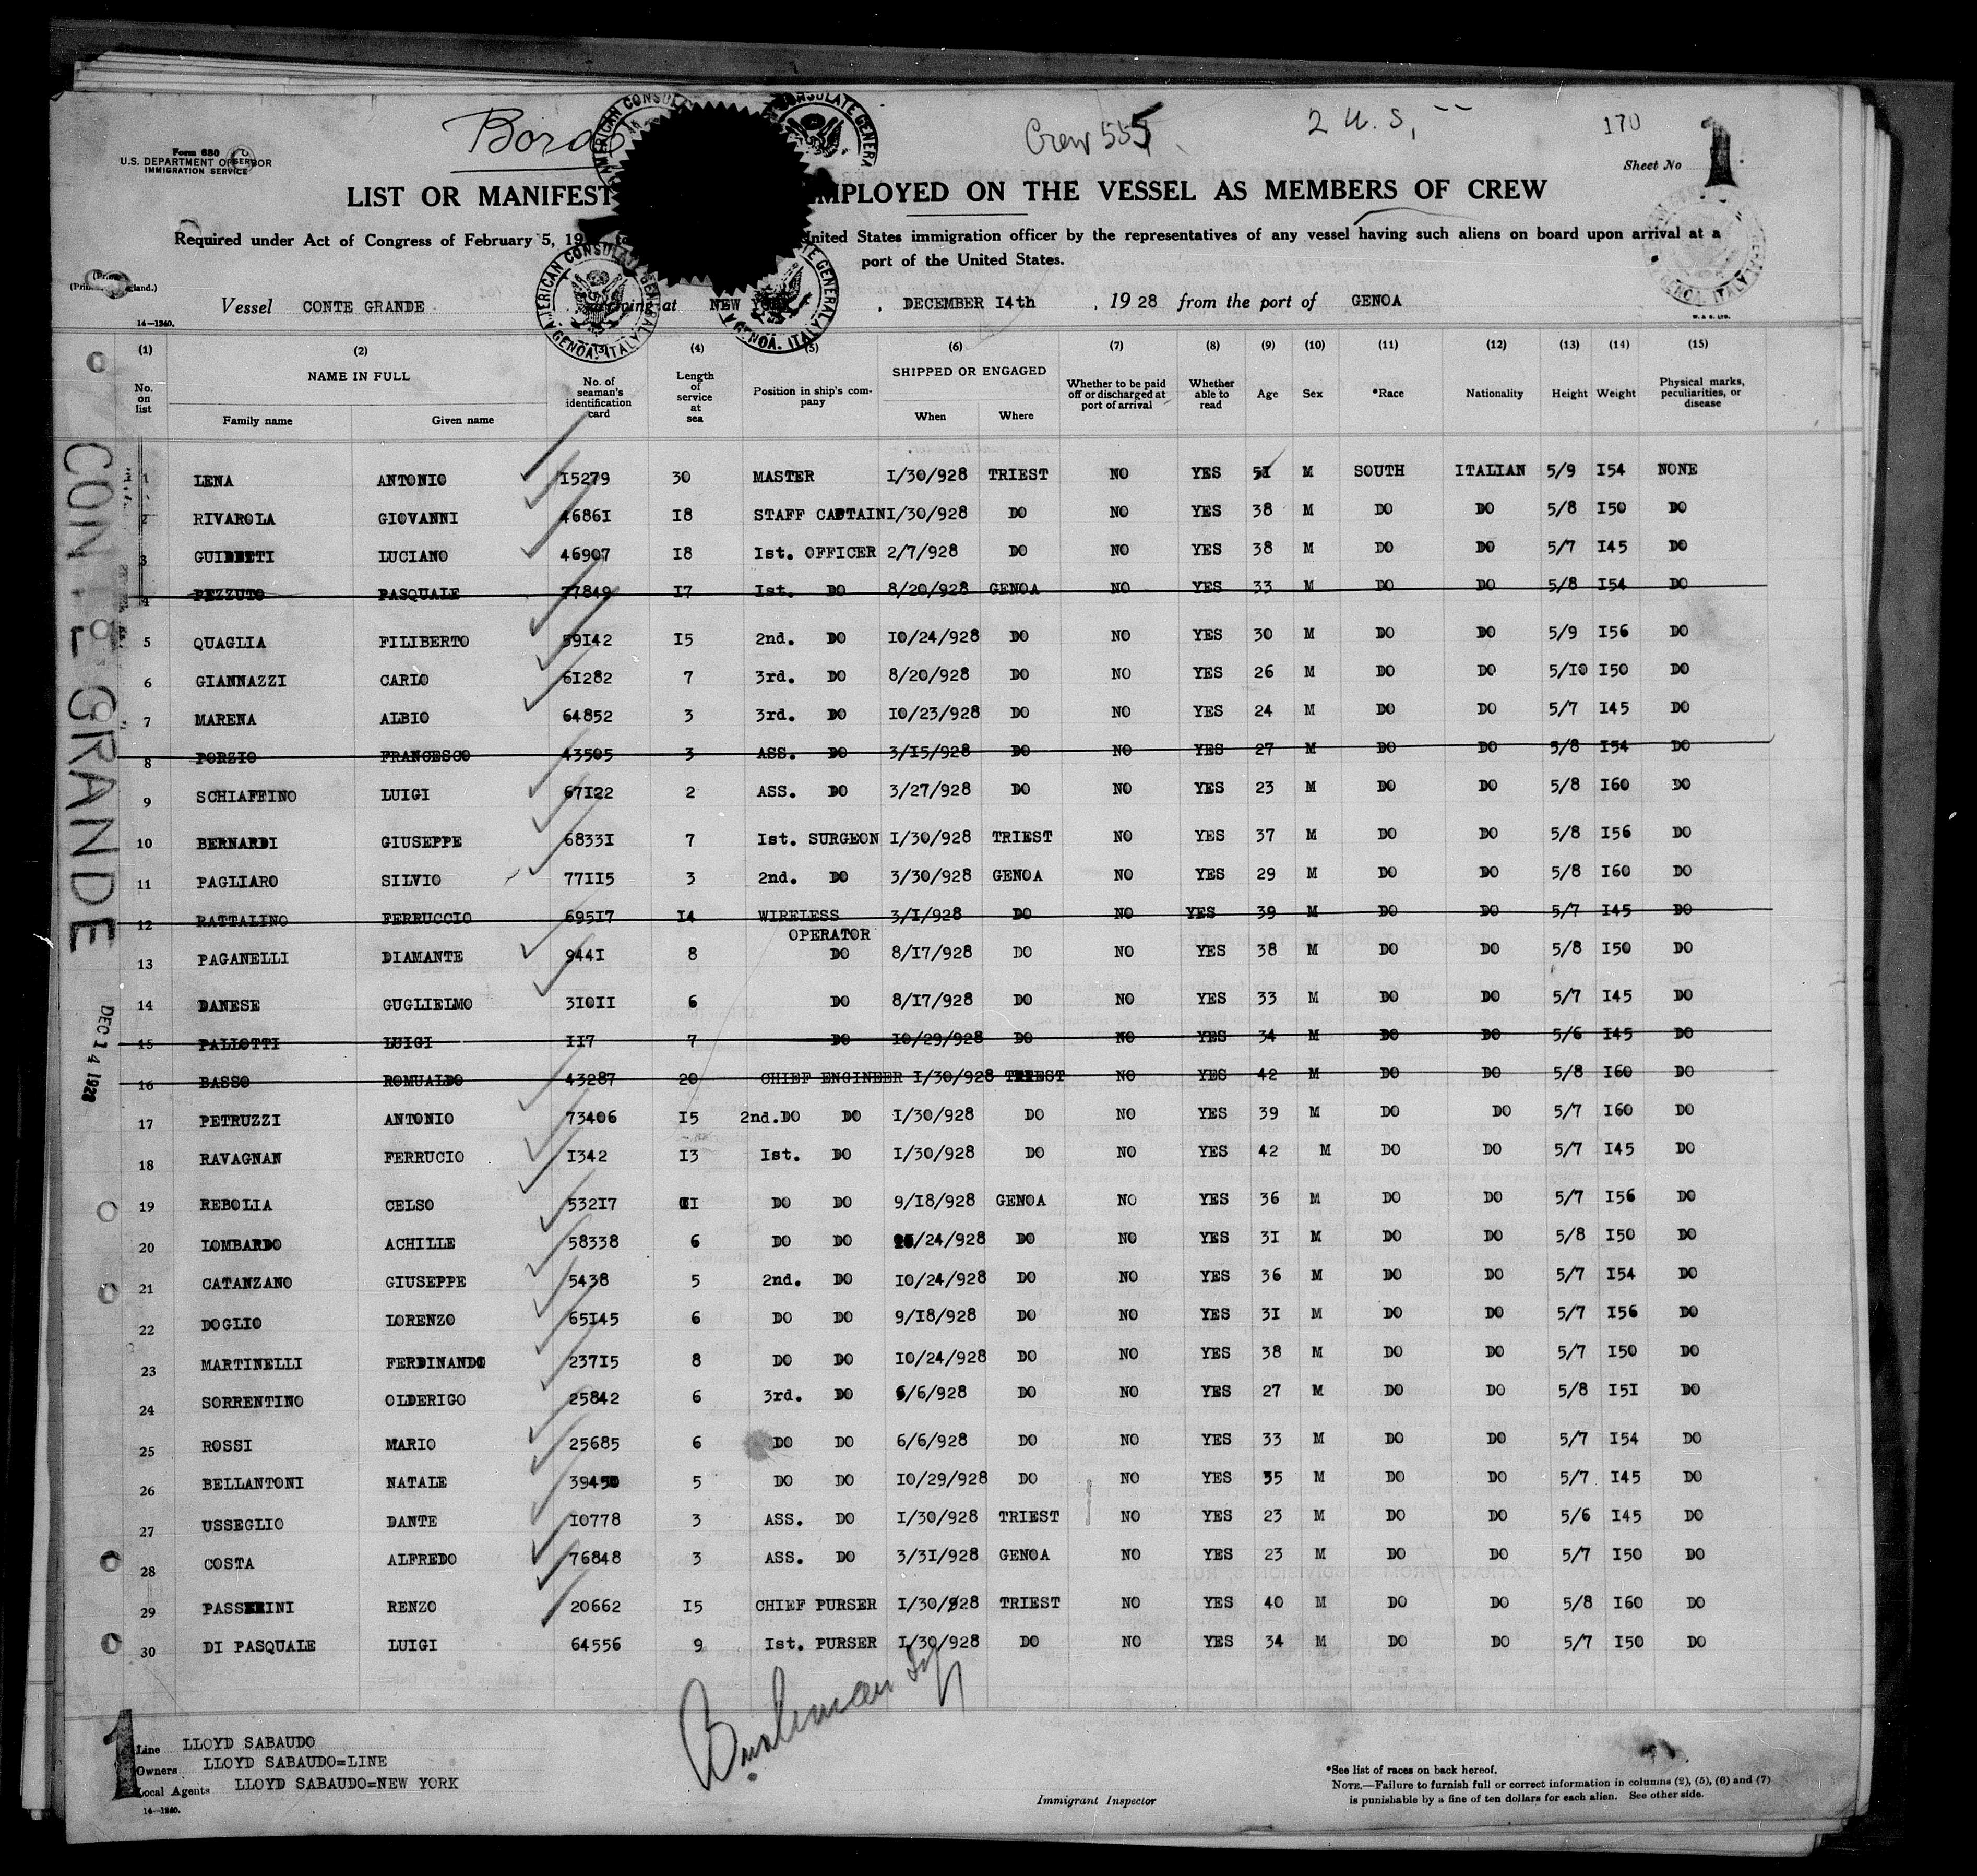 Form 680
U.S. DEPARTMENT OF LABOR
IMMIGRATION SERVICE
Crew 555
2 U. S, --
170
Sheet No 1
LIST OR MANIFEST EMPLOYED ON THE VESSEL AS MEMBERS OF CREW
Required under Act of Congress of February 5, 19 United States immigration officer by the representatives of any vessel having such aliens on board upon arrival at a
port of the United States.
AMERICAN CONSULATE GENERAL GENOA, ITALY
Vessel CONTE GRANDE at NEW YORK , DECEMBER I4th , 19 28 from the port of GENOA
14—1240.
(1) (2) (3) (4) (5) (6) (7) (8) (9) (10) (11) (12) (13) (14) (15)
No. on list NAME IN FULL Family name Given name No. of seaman's identification card Length of service at sea Position in ship's company SHIPPED OR ENGAGED When Where Whether to be paid off or discharged at port of arrival Whether able to read Age Sex *Race Nationality Height Weight Physical marks, peculiarities, or disease
1 LENA ANTONIO I5279 30 MASTER I/30/928 TRIEST NO YES 5I M SOUTH ITALIAN 5/9 I54 NONE
2 RIVAROLA GIOVANNI 4686I I8 STAFF CAPTAIN I/30/928 DO NO YES 38 M DO DO 5/8 I50 DO
3 GUIDETTI LUCIANO 46907 I8 Ist. OFFICER 2/7/928 DO NO YES 38 M DO DO 5/7 I45 DO
4 PEZZUTO PASQUALE 77849 I7 Ist. DO 8/20/928 GENOA NO YES 33 M DO DO 5/8 I54 DO
5 QUAGLIA FILIBERTO 59I42 I5 2nd. DO I0/24/928 DO NO YES 30 M DO DO 5/9 I56 DO
6 GIANNAZZI CARLO 6I282 7 3rd. DO 8/20/928 DO NO YES 26 M DO DO 5/I0 I50 DO
7 MARENA ALBIO 64852 3 3rd. DO I0/23/928 DO NO YES 24 M DO DO 5/7 I45 DO
8 PORZIO FRANCESCO 43505 3 ASS. DO 3/I5/928 DO NO YES 27 M DO DO 5/8 I54 DO
9 SCHIAFFINO LUIGI 67I22 2 ASS. DO 3/27/928 DO NO YES 23 M DO DO 5/8 I60 DO
10 BERNARDI GIUSEPPE 6833I 7 Ist. SURGEON I/30/928 TRIEST NO YES 37 M DO DO 5/8 I56 DO
11 PAGLIARO SILVIO 77II5 3 2nd. DO 3/30/928 GENOA NO YES 29 M DO DO 5/8 I60 DO
12 RATTALINO FERRUCCIO 695I7 I4 WIRELESS 3/I/928 DO NO YES 39 M DO DO 5/7 I45 DO
OPERATOR
13 PAGANELLI DIAMANTE 944I 8 DO 8/I7/928 DO NO YES 38 M DO DO 5/8 I50 DO
14 DANESE GUGLIELMO 3I0II 6 DO 8/I7/928 DO NO YES 33 M DO DO 5/7 I45 DO
15 PALLOTTI LUIGI II7 7 DO I0/29/928 DO NO YES 34 M DO DO 5/6 I45 DO
16 BASSO ROMUALDO 43287 20 CHIEF ENGINEER I/30/928 TRIEST NO YES 42 M DO DO 5/8 I60 DO
17 PETRUZZI ANTONIO 73406 I5 2nd.DO DO I/30/928 DO NO YES 39 M DO DO 5/7 I60 DO
18 RAVAGNAN FERRUCIO I342 I3 Ist. DO I/30/928 DO NO YES 42 M DO DO 5/7 I45 DO
19 REBOLIA CELSO 532I7 II DO DO 9/I8/928 GENOA NO YES 36 M DO DO 5/7 I56 DO
20 LOMBARDO ACHILLE 58338 6 DO DO /24/928 DO NO YES 3I M DO DO 5/8 I50 DO
21 CATANZANO GIUSEPPE 5438 5 2nd. DO I0/24/928 DO NO YES 36 M DO DO 5/7 I54 DO
22 DOGLIO LORENZO 65I45 6 DO DO 9/I8/928 DO NO YES 3I M DO DO 5/7 I56 DO
23 MARTINELLI FERDINANDO 237I5 8 DO DO I0/24/928 DO NO YES 38 M DO DO 5/7 I50 DO
24 SORRENTINO OLDERIGO 25842 6 3rd. DO 6/6/928 DO NO YES 27 M DO DO 5/8 I5I DO
25 ROSSI MARIO 25685 6 DO DO 6/6/928 DO NO YES 33 M DO DO 5/7 I54 DO
26 BELLANTONI NATALE 39450 5 DO DO I0/29/928 DO NO YES 35 M DO DO 5/7 I45 DO
27 USSEGLIO DANTE I0778 3 ASS. DO I/30/928 TRIEST NO YES 23 M DO DO 5/6 I45 DO
28 COSTA ALFREDO 76848 3 ASS. DO 3/3I/928 GENOA NO YES 23 M DO DO 5/7 I50 DO
29 PASSERINI RENZO 20662 I5 CHIEF PURSER I/30/928 TRIEST NO YES 40 M DO DO 5/8 I60 DO
30 DI PASQUALE LUIGI 64556 9 Ist. PURSER I/30/928 DO NO YES 34 M DO DO 5/7 I50 DO
CONTE GRANDE
DEC 14 1928
1
Line LLOYD SABAUDO
Owners LLOYD SABAUDO=LINE
Local Agents LLOYD SABAUDO=NEW YORK
14—1240.
Immigrant Inspector
*See list of races on back hereof.
NOTE.—Failure to furnish full or correct information in columns (2), (5), (6) and (7)
is punishable by a fine of ten dollars for each alien. See other side.